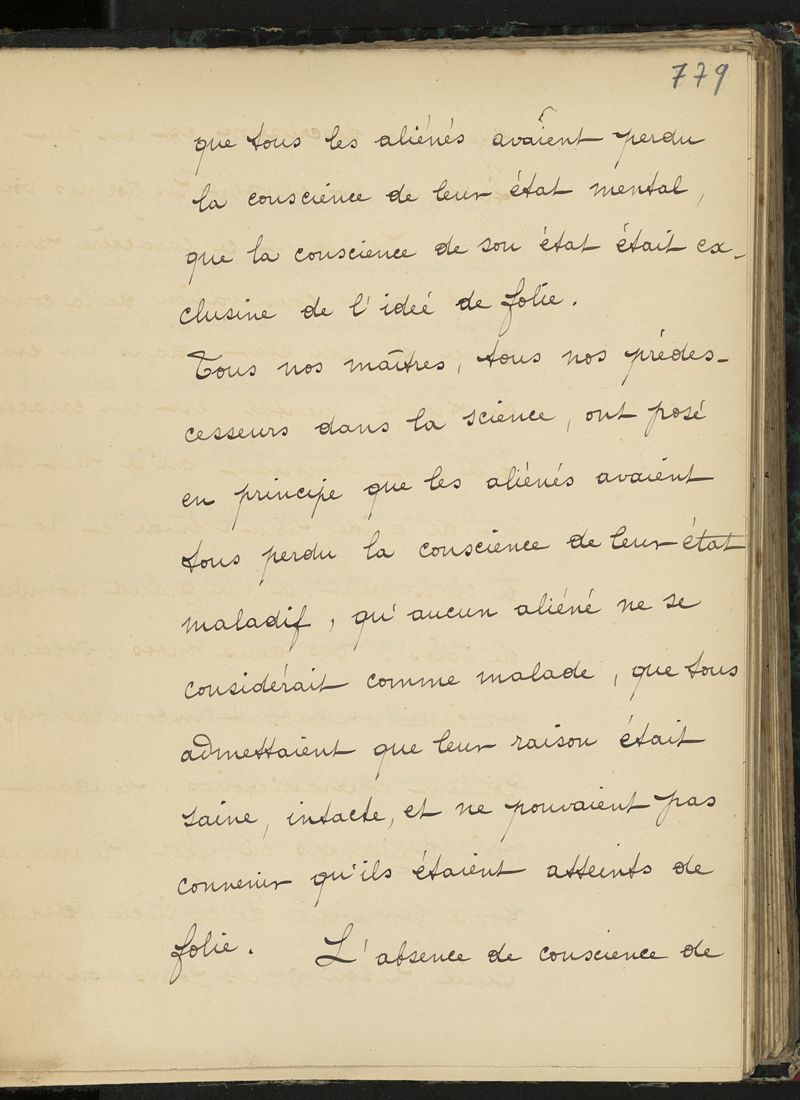 779
que tous les aliénés avaient perdu
la conscience de leur état mental,
que la conscience de son état était ex-
clusine de l'ideé de folie.
Tous nos maîtres, tous nos prédes-
cesseurs dans la science, ont posé
en principe que les aliénés avaient
tous perdu la conscience de leur état
maladif, qu'aucun aliéné ne se
considérait comme malade, que tous
admettaient que leur raison était
saine, intacte, et ne pouvaient pas
convenir qu'ils étaient atteints de
folie. L'absence de conscience de